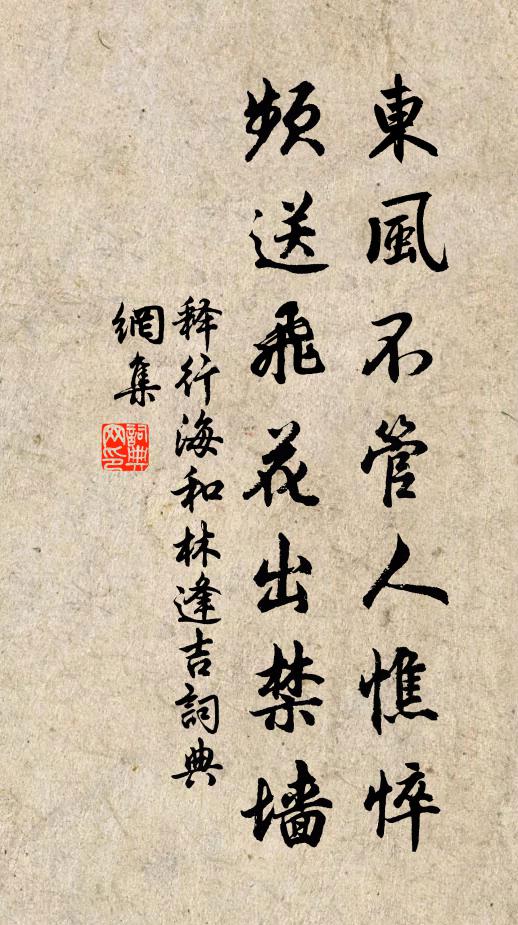 東風不管人憔悴
頻送飛花出禁墙
释行海和林逢吉詞典
網集
詞典
网印